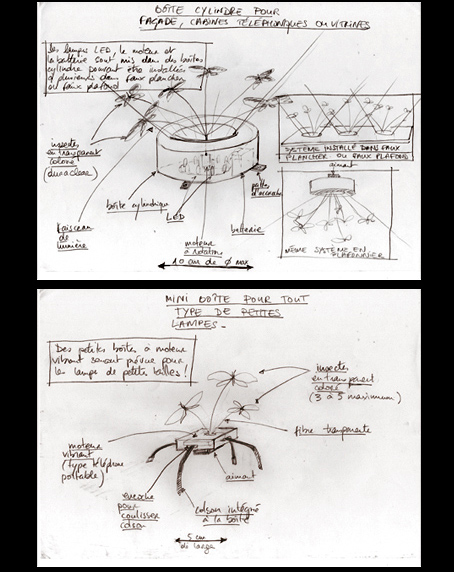 BOÎTE CYLINDRE POUR
FAÇADE, CABINES TÉLÉPHONIQUES OU VITRINES
Les lampes LED, le moteur et
la batterie sont mis dans des boîtes
cylindre pouvant être installés
dans faux plancher
ou faux plafond
insectes
en transparent
coloré
(duraclear)
SYSTÈME INSTALLÉ DANS FAUX
PLANCHER OU FAUX PLAFOND
aimant
boîte cylindrique
LED
pattes
d'accroche
batterie
faisceau
de
lumière
moteur
à rotation
10 cm de Ø max
MÊME SYSTÈME EN
PLAFONNIER
MINI BOÎTE POUR TOUT
TYPE DE PETITES
LAMPES
Des petites boîtes à moteur
vibrant seront prévue pour
les lampes de petites tailles !
insectes
en transparent
coloré
(3 à 5 maximum)
fibre transparente
moteur
vibrant
(type téléphone
portable)
aimant
encoche
pour
coulisser
colson
colson intégré
à la boîte
5 cm
de large